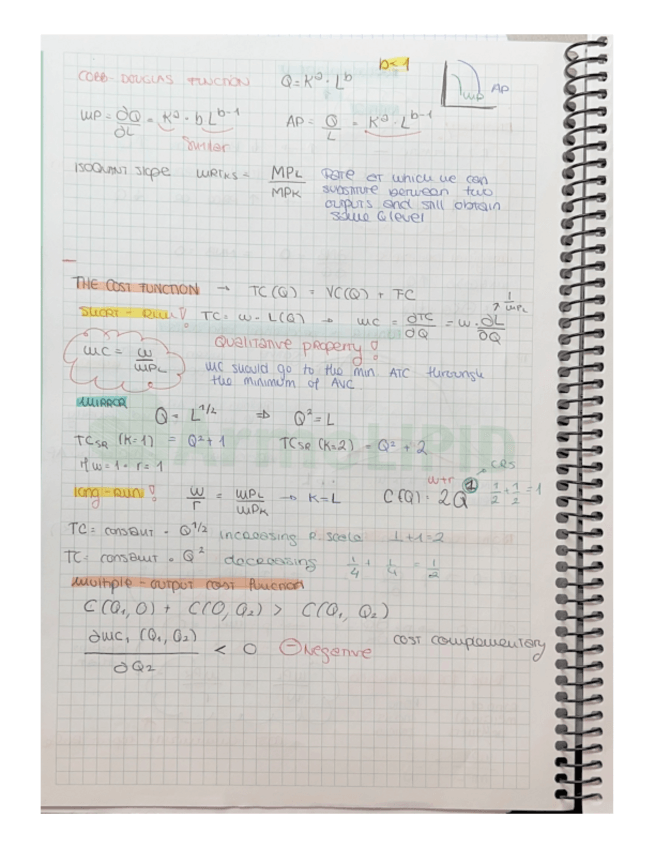 b<1
COBB-DOUGLAS FUNCTION Q = K^a · L^b
MP AP
MP = ∂Q/∂L = K^a · b L^b-1 AP = Q/L = K^a · L^b-1
Similar
ISOQUANT slope MRTKS = MPL/MPK Rate at which we can
substitute between two
outputs and still obtain
same Q level
THE COST FUNCTION → TC(Q) = VC(Q) + FC
SHORT-RUN! TC = w · L(Q) → MC = ∂TC/∂Q = w · ∂L/∂Q ↗ 1/MPL
MC = w/MPL Qualitative property!
MC sould go to the min ATC through
the minimum of AVC
MIRROR
Q = L^1/2 ⇒ Q^2 = L
TCSR (K=1) = Q^2 + 1 TCSR (K=2) = Q^2 + 2
if w=1 · r=1
long-run! w/r = MPL/MPK → K=L w+r C(Q) = 2Q^1 CRS 1/2 + 1/2 = 1
TC = constant · Q^1/2 increasing R. scale 1+1=2
TC = constant · Q^2 decreasing 1/4 + 1/4 = 1/2
multiple-output cost function
C(Q1, 0) + C(0, Q2) > C(Q1, Q2)
∂MC1 (Q1, Q2)/∂Q2 < 0 ⊖ Negative cost complementary